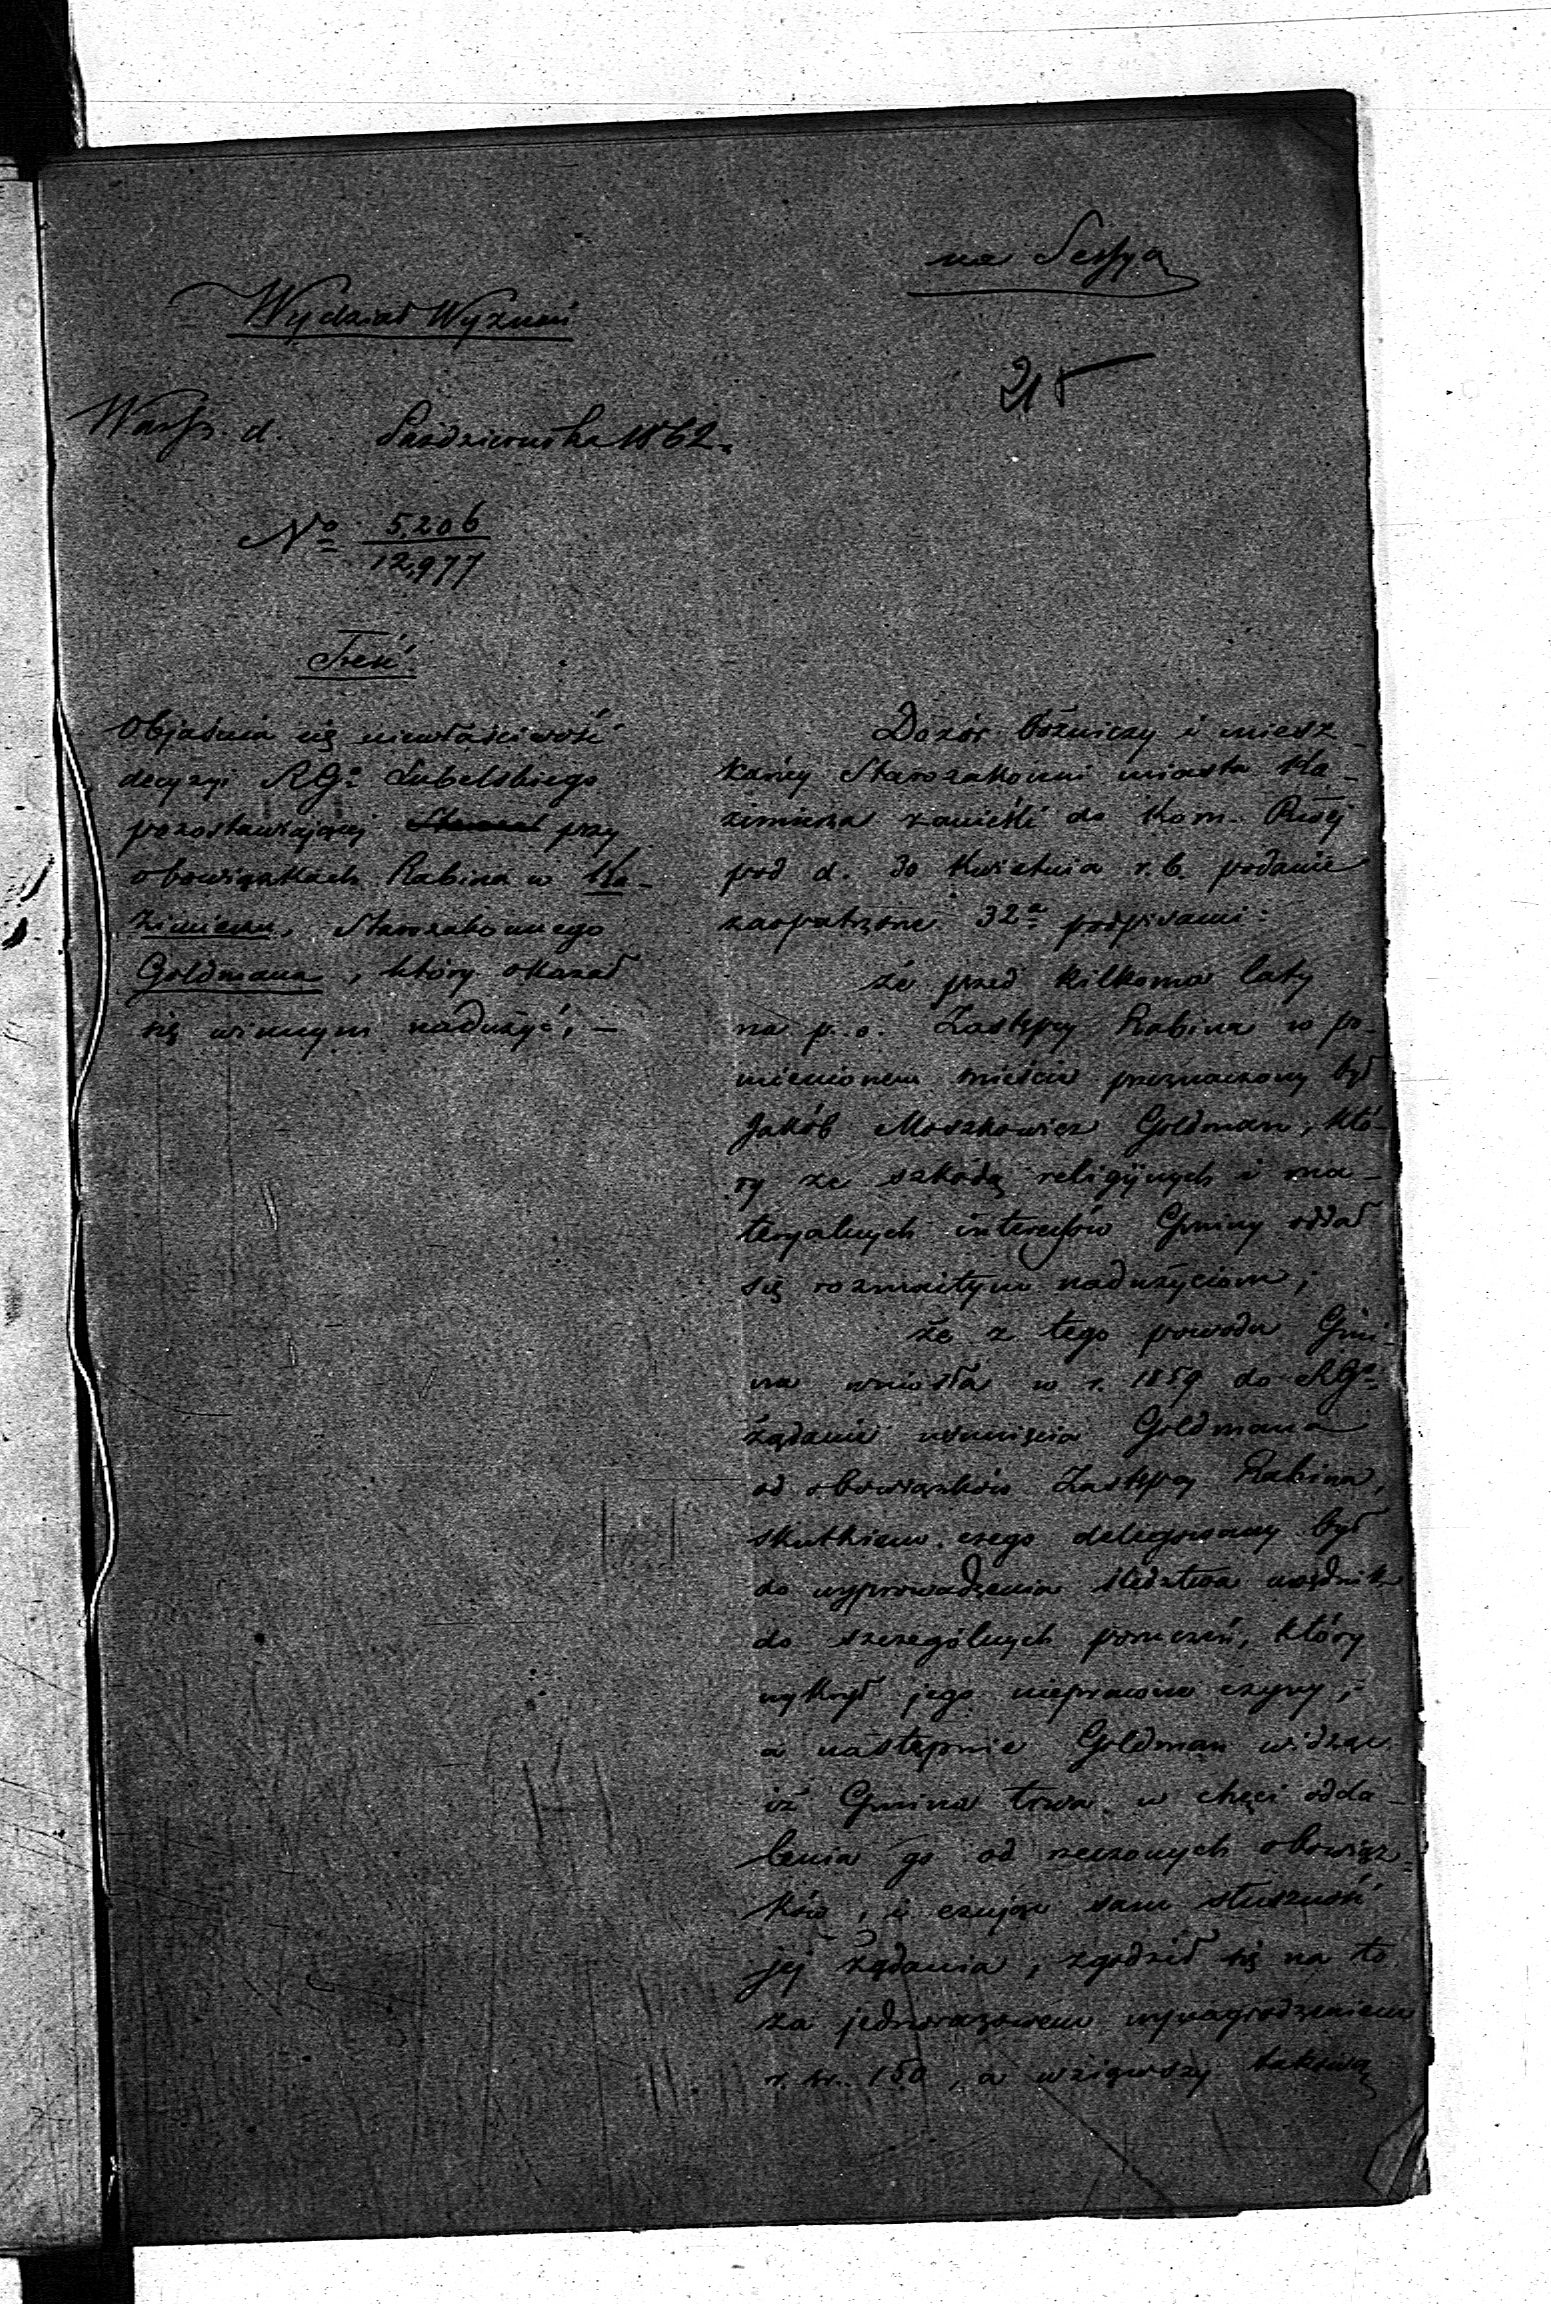 na Sessyą
Wydział Wyznań
215
Warsz. d. Października 1862.
No 5,206
12,977
Treść
Objaśnia się niewłaściwość
decyzyi RGo Lubelskiego
pozostawiającej przy
obowiązkach Rabina w Ka-
zimierzu, Starozakonnego
Goldmana, który okazał
się winnym nadużyć, –
Dozór bóżniczy i miesz-
kańcy Starozakonni miasta Ka-
zimierza zanieśli do Kom. Rząej
pod d. 30 Kwietnia r. b. podanie
zaopatrzone 32a podpisami:
że przed kilkoma laty
na p. o. Zastępcy Rabina w po-
mienionem mieście przeznaczony był
Jakób Moszkowicz Goldman, któ-
ry ze szkodą religijnych i ma-
teryalnych interessów Gminy oddał
się rozmaitym nadużyciom;
że z tego powodu Gmi-
na wniosła w r. 1859 do RGo
żądanie usunięcia Goldmana
od obowiązków Zastępcy Rabina,
skutkiem czego delegowany był
do wyprowadzenia śledztwa urzędnik
do szczególnych poruczeń, który
wykrył jego nieprawne czyny;
a następnie Goldman widząc
iż Gmina trwa w chęci odda-
lenia go od rzeczonych obowiąz-
ków, i czując sam słuszność
jej żądania, zgodził się na to
za jednorazowem wynagrodzeniem
r. sr. 150, a wziąwszy takową